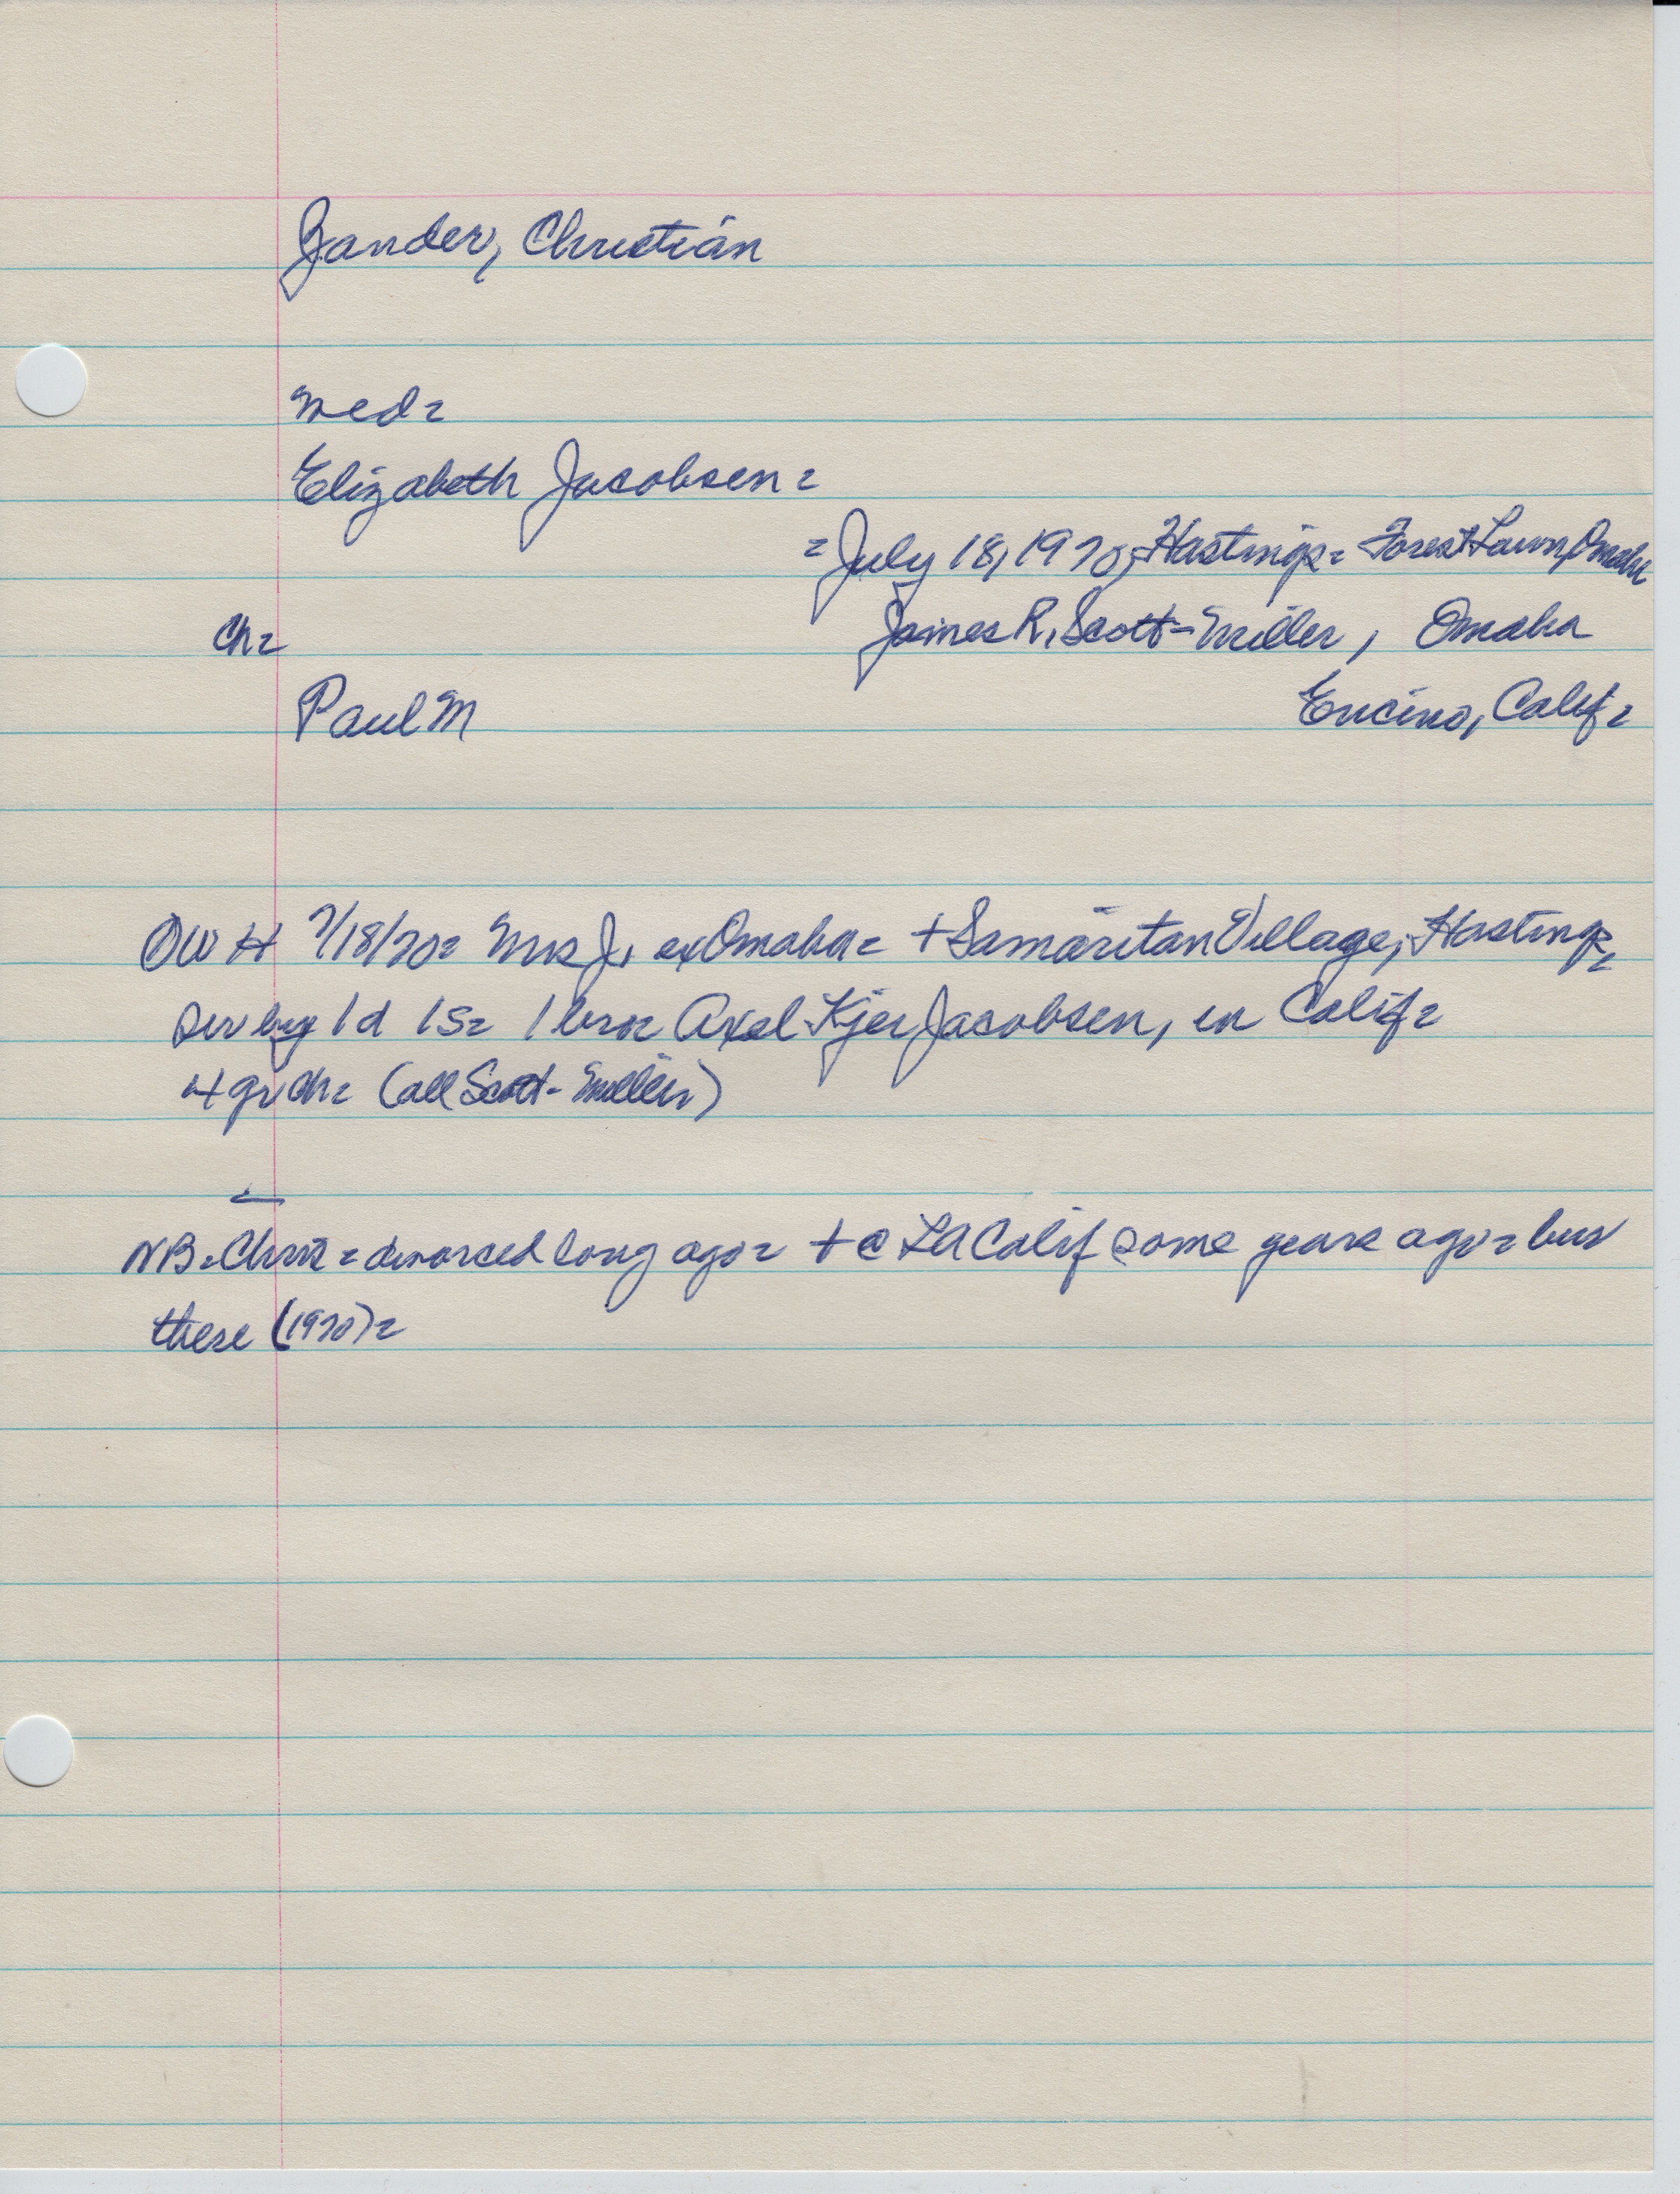 Zander, Christian
med=
Elizabeth Jacobsen=
=July 18, 1970, Hastings= Forest Lawn, Omaha
Ch= James R. Scott-Miller, Omaha
Paul M Encino, Calif=
OWH 7/18/70= Mrs J. ex Omaha= + Samaritan Village, Hastings=
sur by 1d 1s= 1 bro= Axel Kjer Jacobsen, in Calif=
4 grch= (all Scott-Miller)
NB. Chris= divorced long ago= + @ LA Calif some years ago= bur
there (1970)=